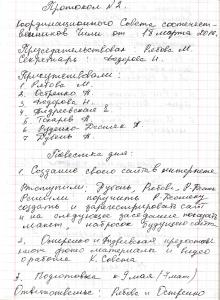 Протокол №2.
Координационного Совета соотечест-
венников Чили от 18 марта 2010.
Председательствовал: Рябова М.
Секретарь: Федорова Н.
Присутствовали:
1 Рябова М.
2. Остренко
3. Федорова Н.
4. Андреевская Е.
5. Токарев
6
7 Дугань
Повестка дня:
1. Создание своего сайта в интернете
Выступили: Дугань, Рябова,
Решили поручить
создать и зарегистрировать сайт
и на следующее заседание показать
макет, набросок будущего сайта
2. Остренко и Андреевская
фото материалы и видео
о работе К. Совета
3. Подготовка к 9 мая (7 мая)
Ответственные: Рябова и Остренко